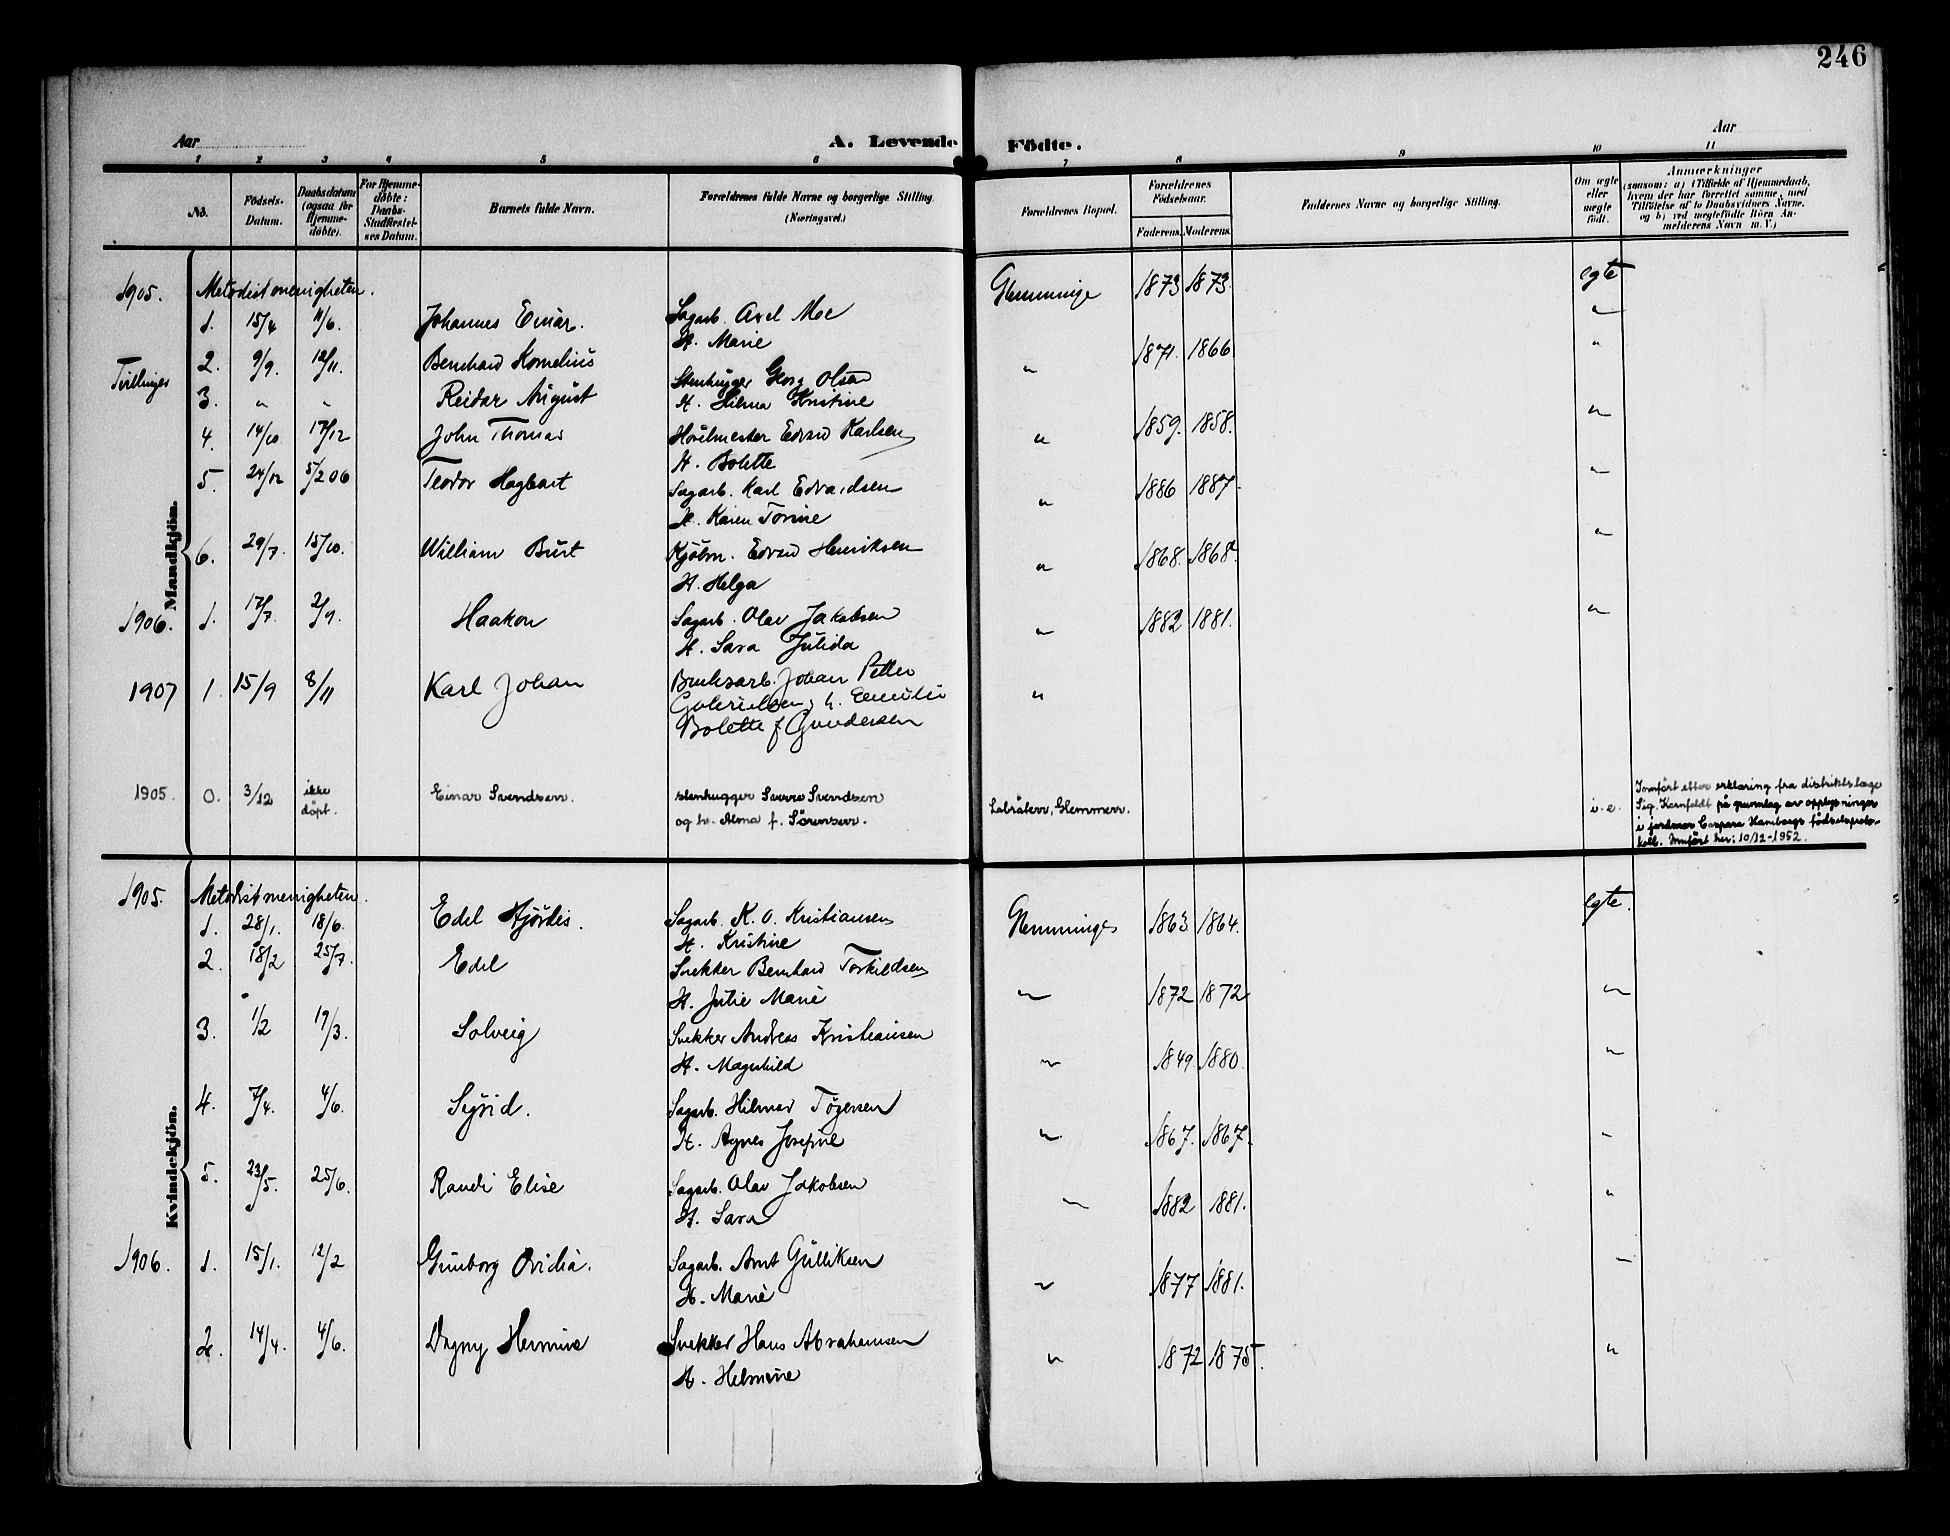 246
Aar
A. Levende Födte.
Aar
1 2 3 4 5 6 7 8 9 10 11
No.
Födsels-Datum.
Daabsdatum (ogsaa for Hjemme-döbte).
For Hjemme-döbte: Daabs-Stadfæstel-ses Datum.
Barnets fulde Navn.
Forældrenes fulde Navne og borgerlige Stilling. (Næringsvei.)
Forældrenes Bopæl.
Forældrenes Födselsaar.
Faderens. Moderens.
Faddernes Navne og borgerlige Stilling.
Om ægte eller uægte födt.
Anmærkninger
(saasom: a) i Tilfælde af Hjemmedaab, hvem der har forrettet samme, med Tilföielse af to Daabsvidners Navne, og b) ved uægtefödte Börn An-melderens Navn m. V.)
Mandkjön.
1905. Metodistmenigheten. Glemminge 1873 1873. egte
1. 15/4 11/6. Johannes Einar. Sagarb. Axel Moe "
H. Marie
2. 9/9. 12/11. Bernhard Kornelius " 1871. 1866 "
Tvillinger
Stenhugger Georg Olsen
3. " " Reidar August H. Hilma Kristine
4. 14/10 17/12 John Thomas Edvard Karlsen " 1859. 1858. "
H. Bolette
5. 24/12 5/2 06 Teodor Hagbart Sagarb. Karl Edvardsen " 1886 1887. "
H. Karen Torine
6. 29/7. 15/10. William Burt Kjøbm. Edvard Henriksen " 1868. 1868. "
H. Helga
1906. 1. 17/7. 2/9. Haakon Sagarb. Olav Jakobsen " 1882 1881. "
H. Sara Julida
1907 1. 15/9 8/11 Karl Johan Bruksarb. Johan Petter "
Gabrielsen, h. Emilie
Bolette f Gundersen
1905. 0. 3/12 ikke döpt. Einar Svendsen. stenhugger Sverre Svendsen
og h. Alma f. Sörensen. Labråten, Glemmen. i. e.
Innfört etter erklæring fra distriktslæge
Sig. Kornfeldt på grunnlag av opplysninger
i jordmor Caspara Hambergs födselsproto-
koll. Innfört her: 10/12-1952.
Kvindekjön.
1905. Metodistmenigheten. egte.
1. 28/1. 18/6. Edel Hjørdis. Sagarb. K. O. Kristiansen Glemminge 1863. 1864.
H. Kristine
2. 18/2 25/7. Edel Snekker Bernhard Torkildsen " 1872 1872 "
H. Julie Marie
3. 1/2 19/3. Solveig Snekker Andreas Kristiansen " 1849. 1880. "
H. Magnhild
4. 7/4. 4/6. Sigrid. Sagarb. Hilmar Tøgersen " 1867. 1867. "
H. Agnes Josefine
5. 23/5. 25/6. Randi Elise Sagarb. Olav Jakobsen " 1882 1881. "
H. Sara
1906. 1. 15/1. 12/2 Gunborg Ovidia. Sagarb. Arnt Gulliksen " 1877 1881. "
H. Marie
2. 14/4. 4/6. Dagny Hermine Snekker Hans Abrahamsen " 1872 1875. "
H. Helmine